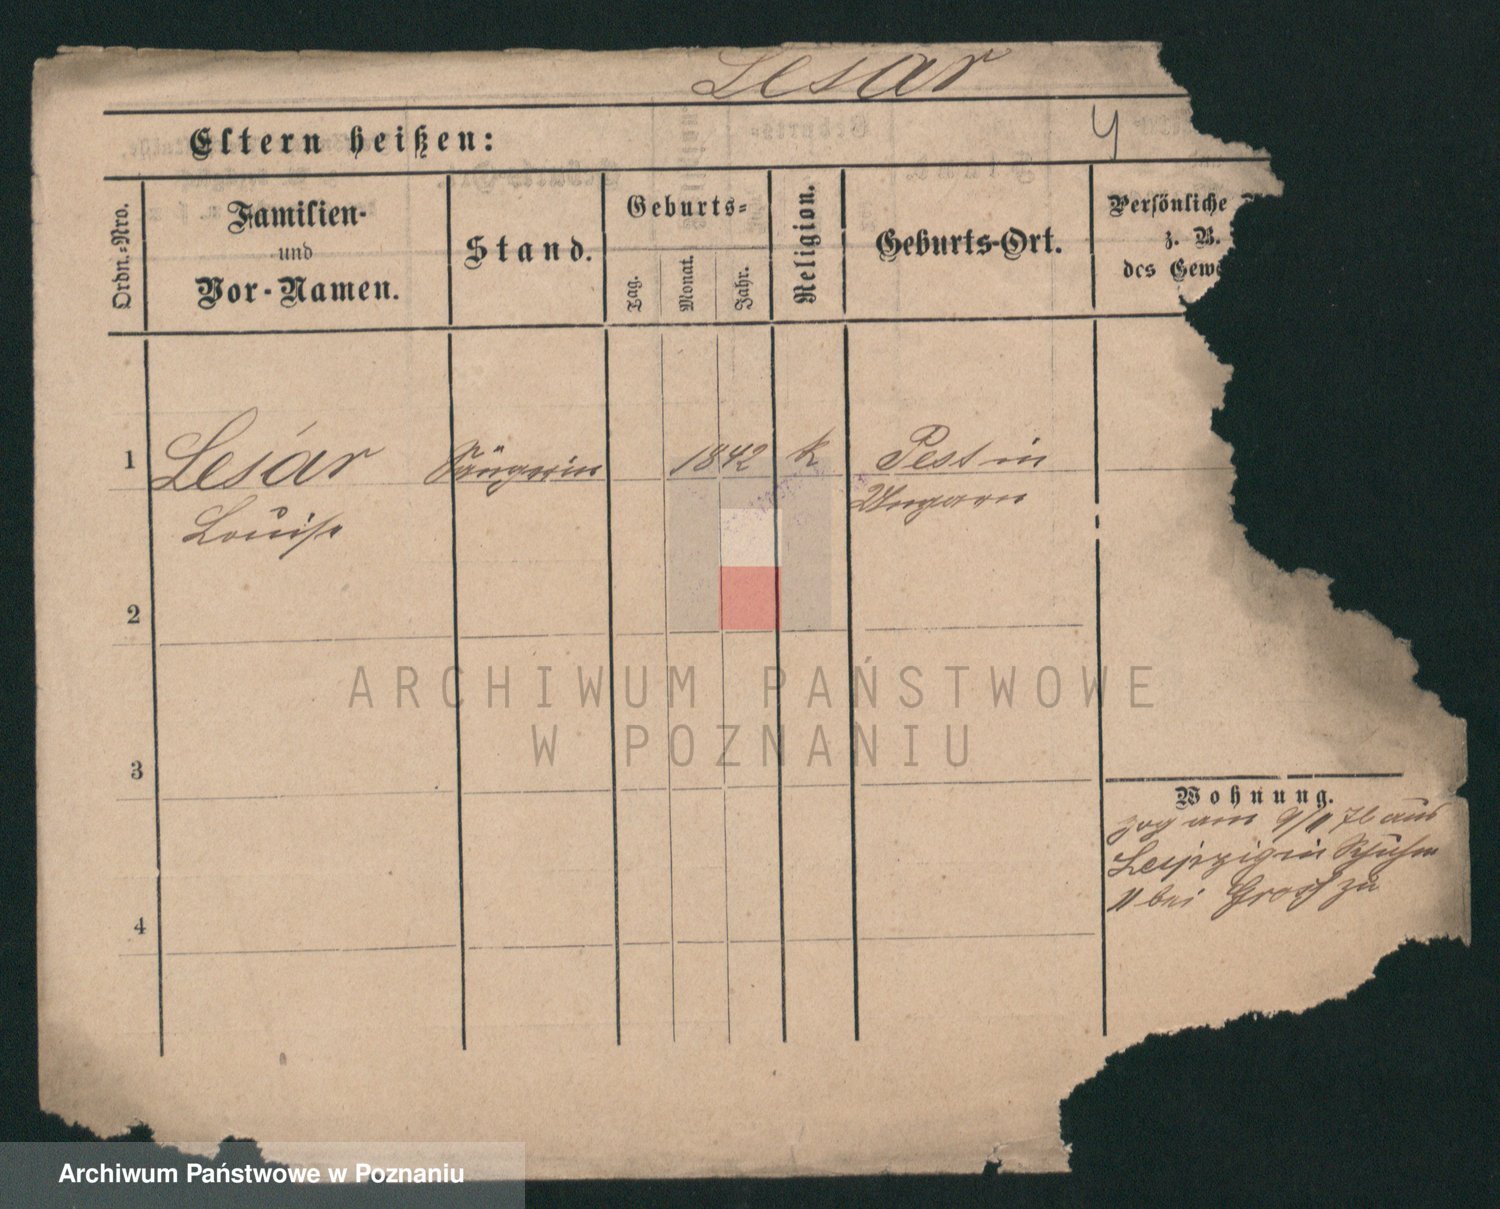 Lesár
4
Eltern heißen:
Ordn.-Nro.
Familien-
und
Vor-Namen.
Stand.
Geburts-
Tag.
Monat.
Jahr.
Religion.
Geburts-Ort.
Persönliche
z. B.
des Gewe
1
Lesár
Sängerin
1842
k
Pest in
Ungarn
Louise
2
3
4
Wohnung.
zog am 9/11 76 aus
Leipzig in
11 bei Gross zu
ARCHIWUM PAŃSTWOWE
W POZNANIU
Archiwum Państwowe w Poznaniu